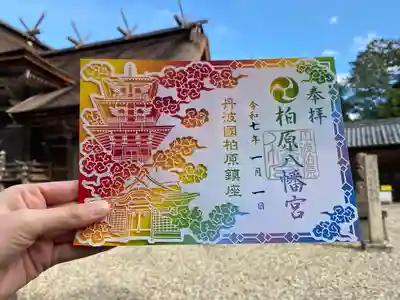 奉拝
柏原八幡宮
令和七年 一月 一日
丹波國柏原鎮座